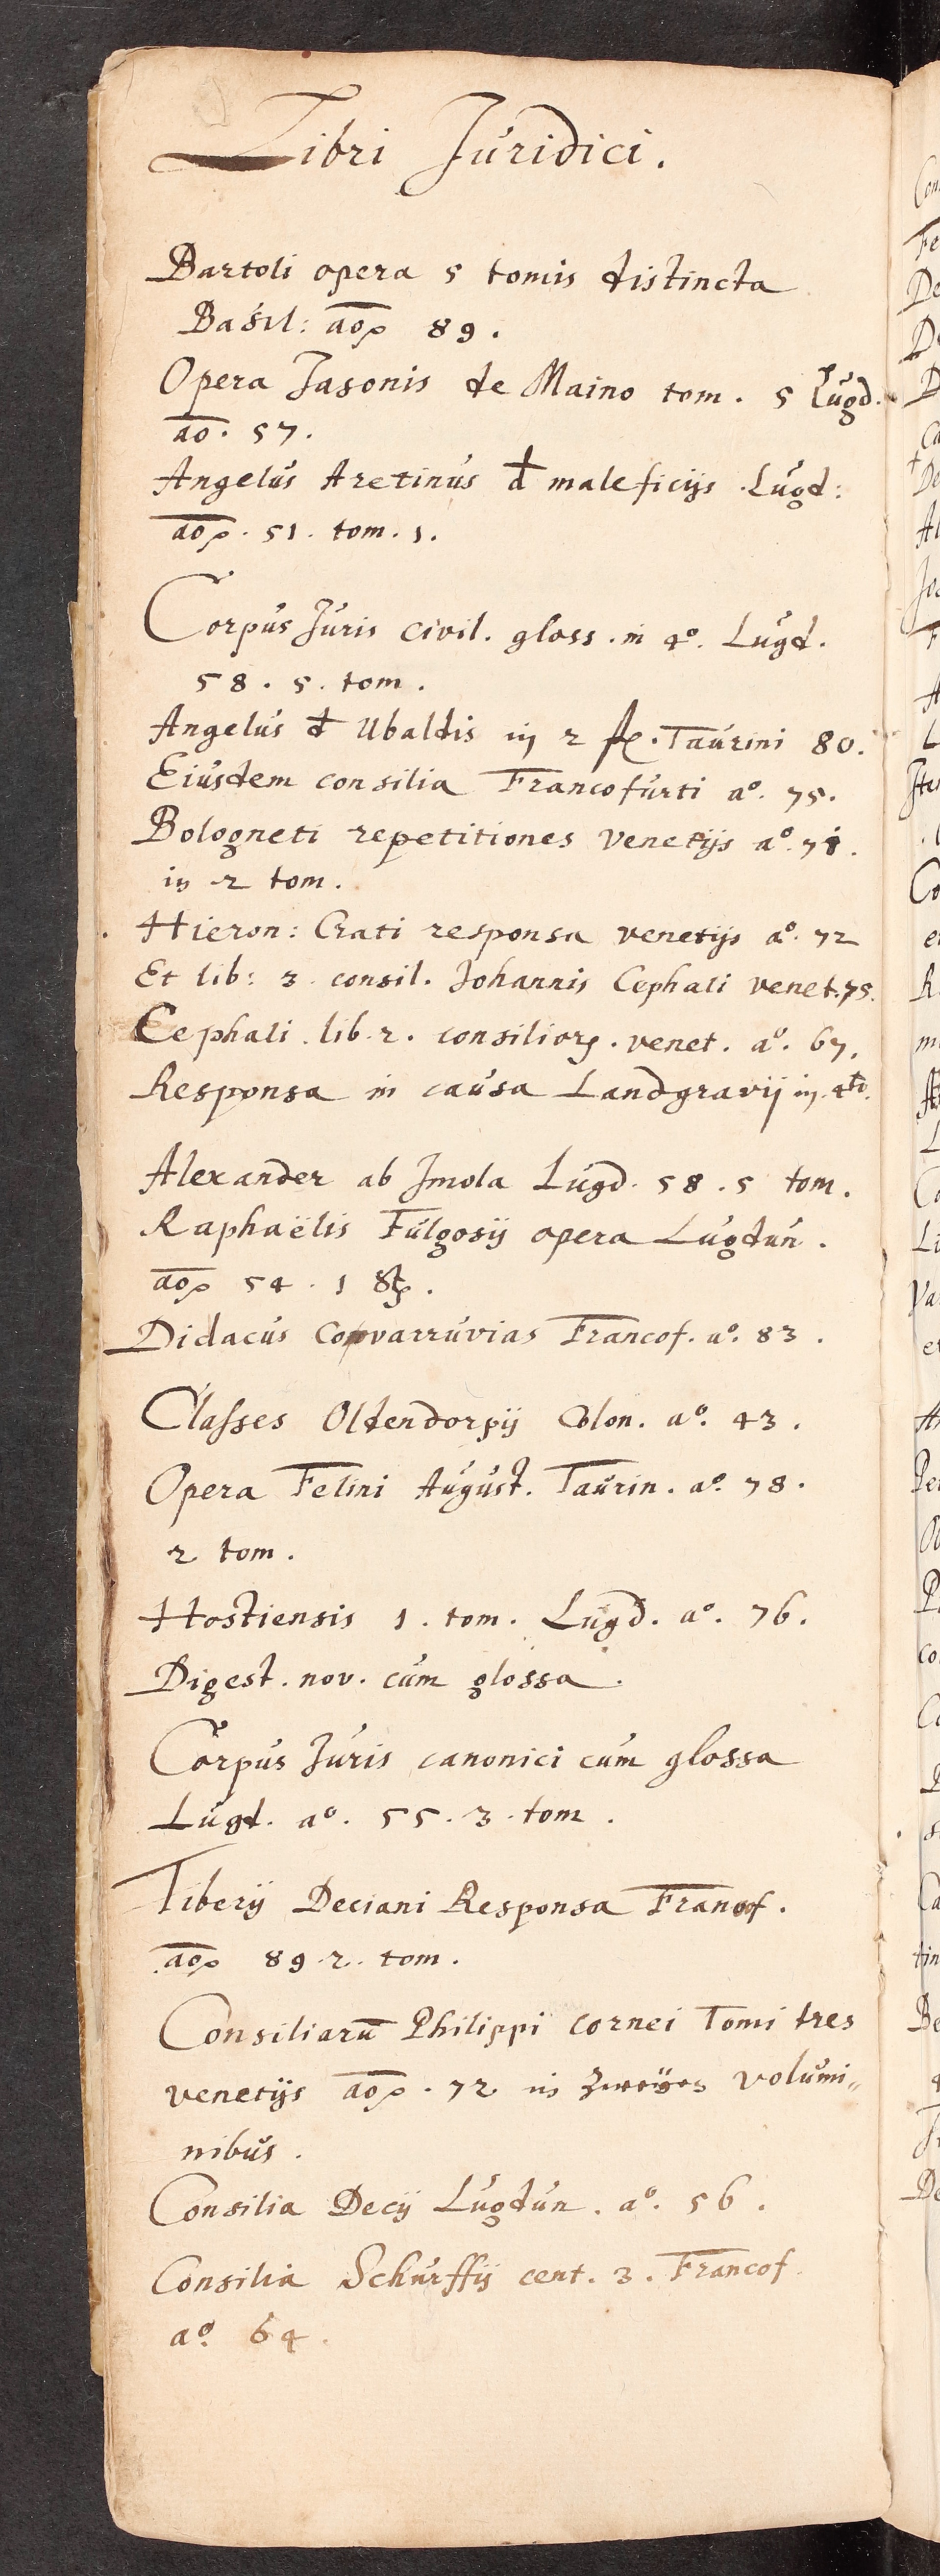 Libri Juridici.
Bartoli opera 5 tomis distincta
Basil: ao 89.
Opera Jasonis de Maino tom. 5 Lugd.
ao. 57.
Angelus Aretinus d maleficijs Lugd:
ao. 51. tom. 1.
Corpus Juris civil. gloss. in 4º. Lugd.
58. 5. tom.
Angelus d Ubaldis in 2 Taurini 80.
Eiusdem consilia Francofurti aº. 75.
Bologneti repetitiones Venetijs aº.
in 2 tom.
Hieron: Grati responsa venetijs aº. 72
Et lib: 3. consil. Johannis Cephali venet. 75.
Cephali lib. 2. consilior. venet. aº. 67.
Responsa in causa Landgravij in 4to.
Alexander ab Imola Lugd. 58. 5 tom.
Raphaëlis Fulgosij opera Lugdun.
ao 54. 1
Didacus Covarruvias Francof. aº. 83.
Classes Oldendorpij Colon. aº. 43.
Opera Felini August. Taurin. aº. 78.
2 tom.
Hostiensis 1. tom. Lugd. aº. 76.
Digest. nov. cum glossa.
Corpus Juris canonici cum glossa
Lugd. aº. 55. 3. tom.
Tiberij Deciani Responsa Francof.
ao 89. 2. tom.
Consiliarū Philippi cornei Tomi tres
venetijs ao. 72 in volumi„
nibus.
Consilia Decij Lugdun. aº. 56.
Consilia Schurffij cent. 3. Francof.
aº. 64.